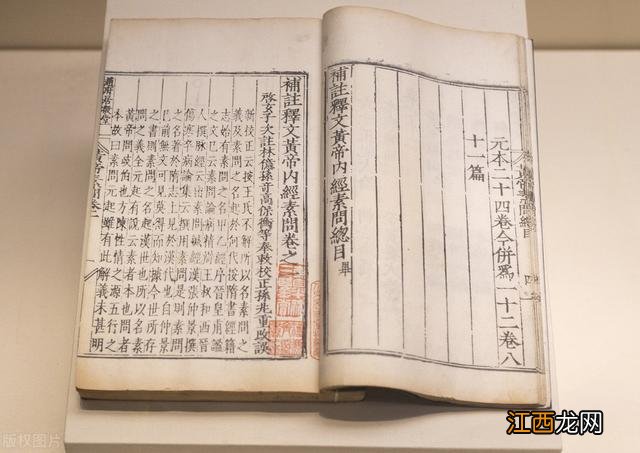 元本二十四卷今併爲一十二卷八
十一篇
補註釋文黃帝內經素問總目 畢
補註釋文黃帝內經素問卷之
啓玄子次註林億孫奇高保衡等奉敕校正孫兆重改誤
新校正云按王氏不解所以名素問之
義及素問之名起於何代按隋書經籍
志始有素問之名甲乙經序晉皇甫謐
之文已云素問論病精辨王叔和西晉
人撰脉經云出素問鍼經漢張仲景撰
傷寒卒病論集云撰用素問是則素問
之名著於隋志上見於漢代也自仲景
已前無文可見莫得而知據今世所存
之書則素問之名起漢世也所以名素
問之義全元起有說云素者本也問者
黃帝問岐伯也方陳性情之源五行之
本故曰素問元起雖有此解義未甚明
版权图片
江西龙网